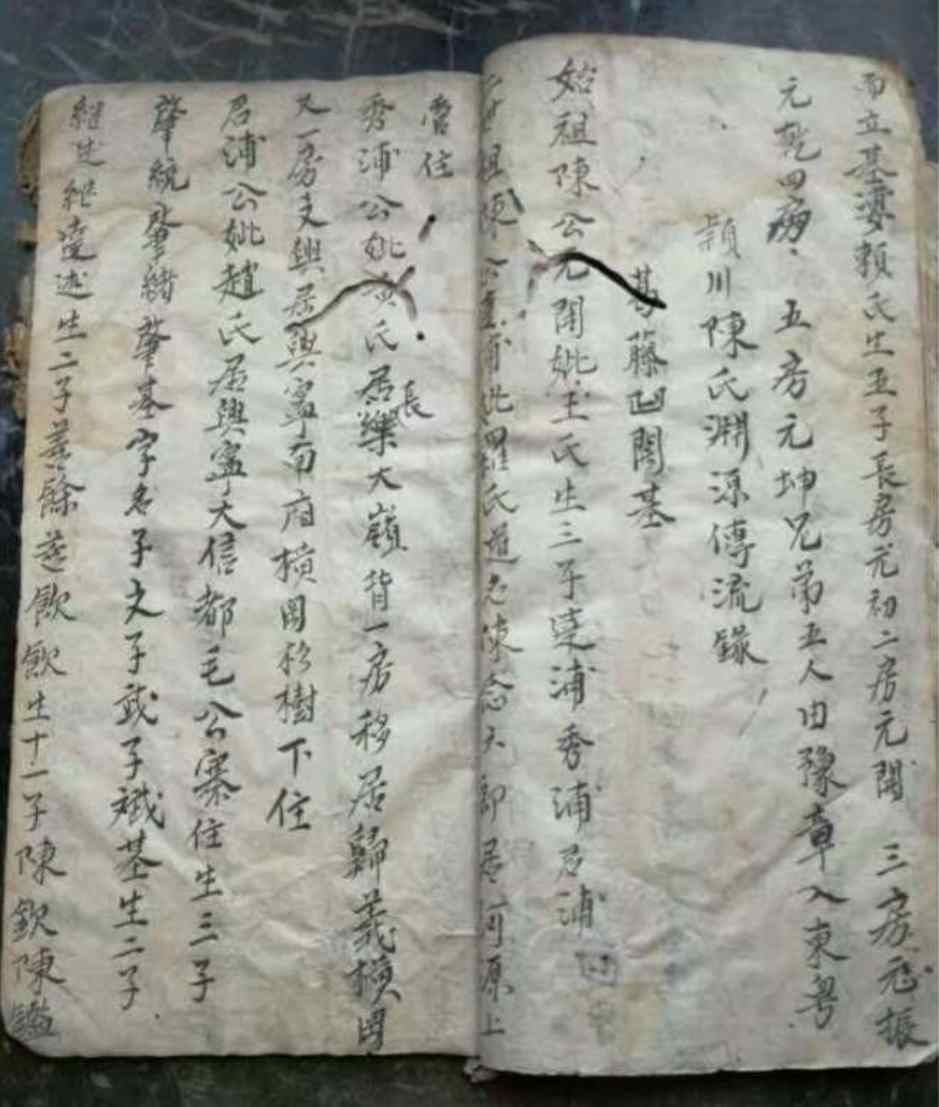 而立基婆賴氏生五子長房元初二房元開 三房元振
元乾四房 五房元坤兄弟五人由豫章入東粵
穎川陳氏淵源傳流錄
葛藤凹開基
始祖陳公元開妣王氏生三子堯浦秀浦君浦
世祖 公堯浦妣羅氏道 陳念 郎居 原上
嵩住
秀浦公妣黃氏居長樂大嶺背一房移居歸義橫田
又一房文興居興寧南廂橫田移樹下住
君浦公妣趙氏居興寧大信都毛公寨住生三子
肇統肇緒肇基字名子文子武子斌基生二子
繼述繼遠述生二子 餘 歆歆生十一子陳欽陳鑑